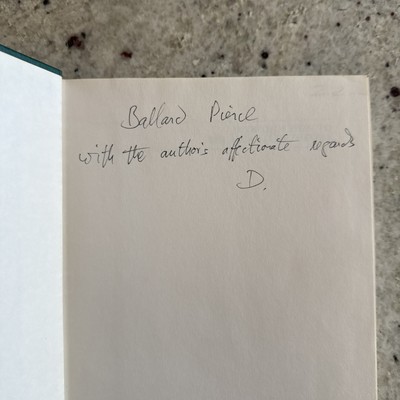 Ballard Pierce
with the author's affectionate regards
D.